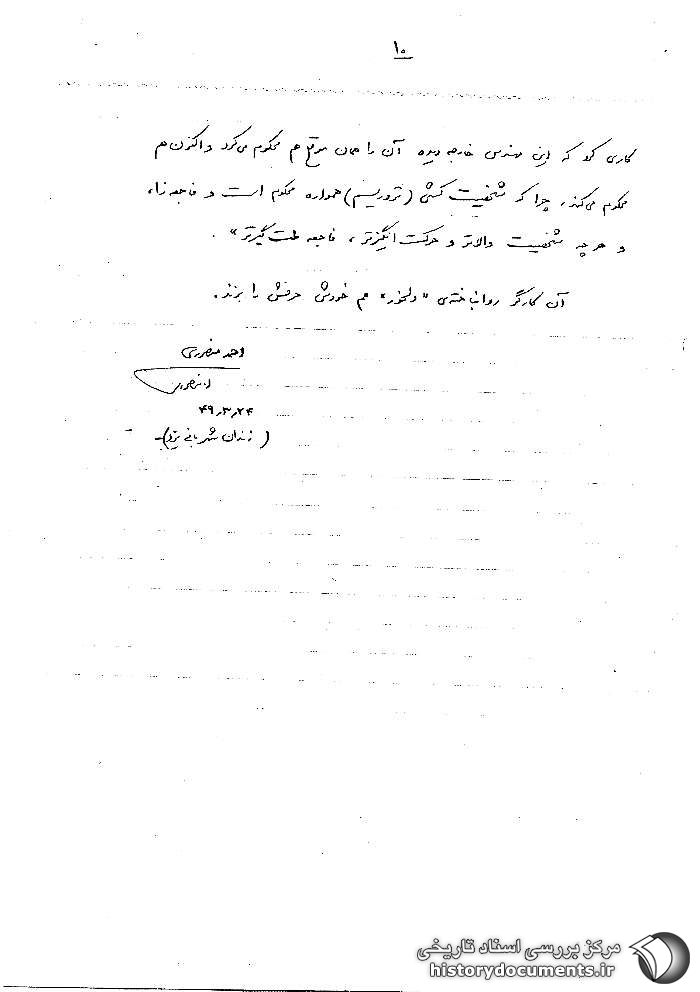 ۱۰
کاری کرد که این مهندس خارجه دیده آن را همان موقع هم محکوم می‌کرد و اکنون هم
محکوم می‌کند، چرا که شخصیت کشی (تروریسم) همواره محکوم است و فاجعه‌زا،
و هر چه شخصیت والاتر و حرکت انگیزتر، فاجعه ملت گیرتر».
آن کارگر روانباخته‌ی «دلخور» هم خودش حرفش را بزند.
احمد منصوری
۴۹٫۳٫۲۴
(زندان شهربانی یزد)
مرکز بررسی اسناد تاریخی
historydocuments.ir